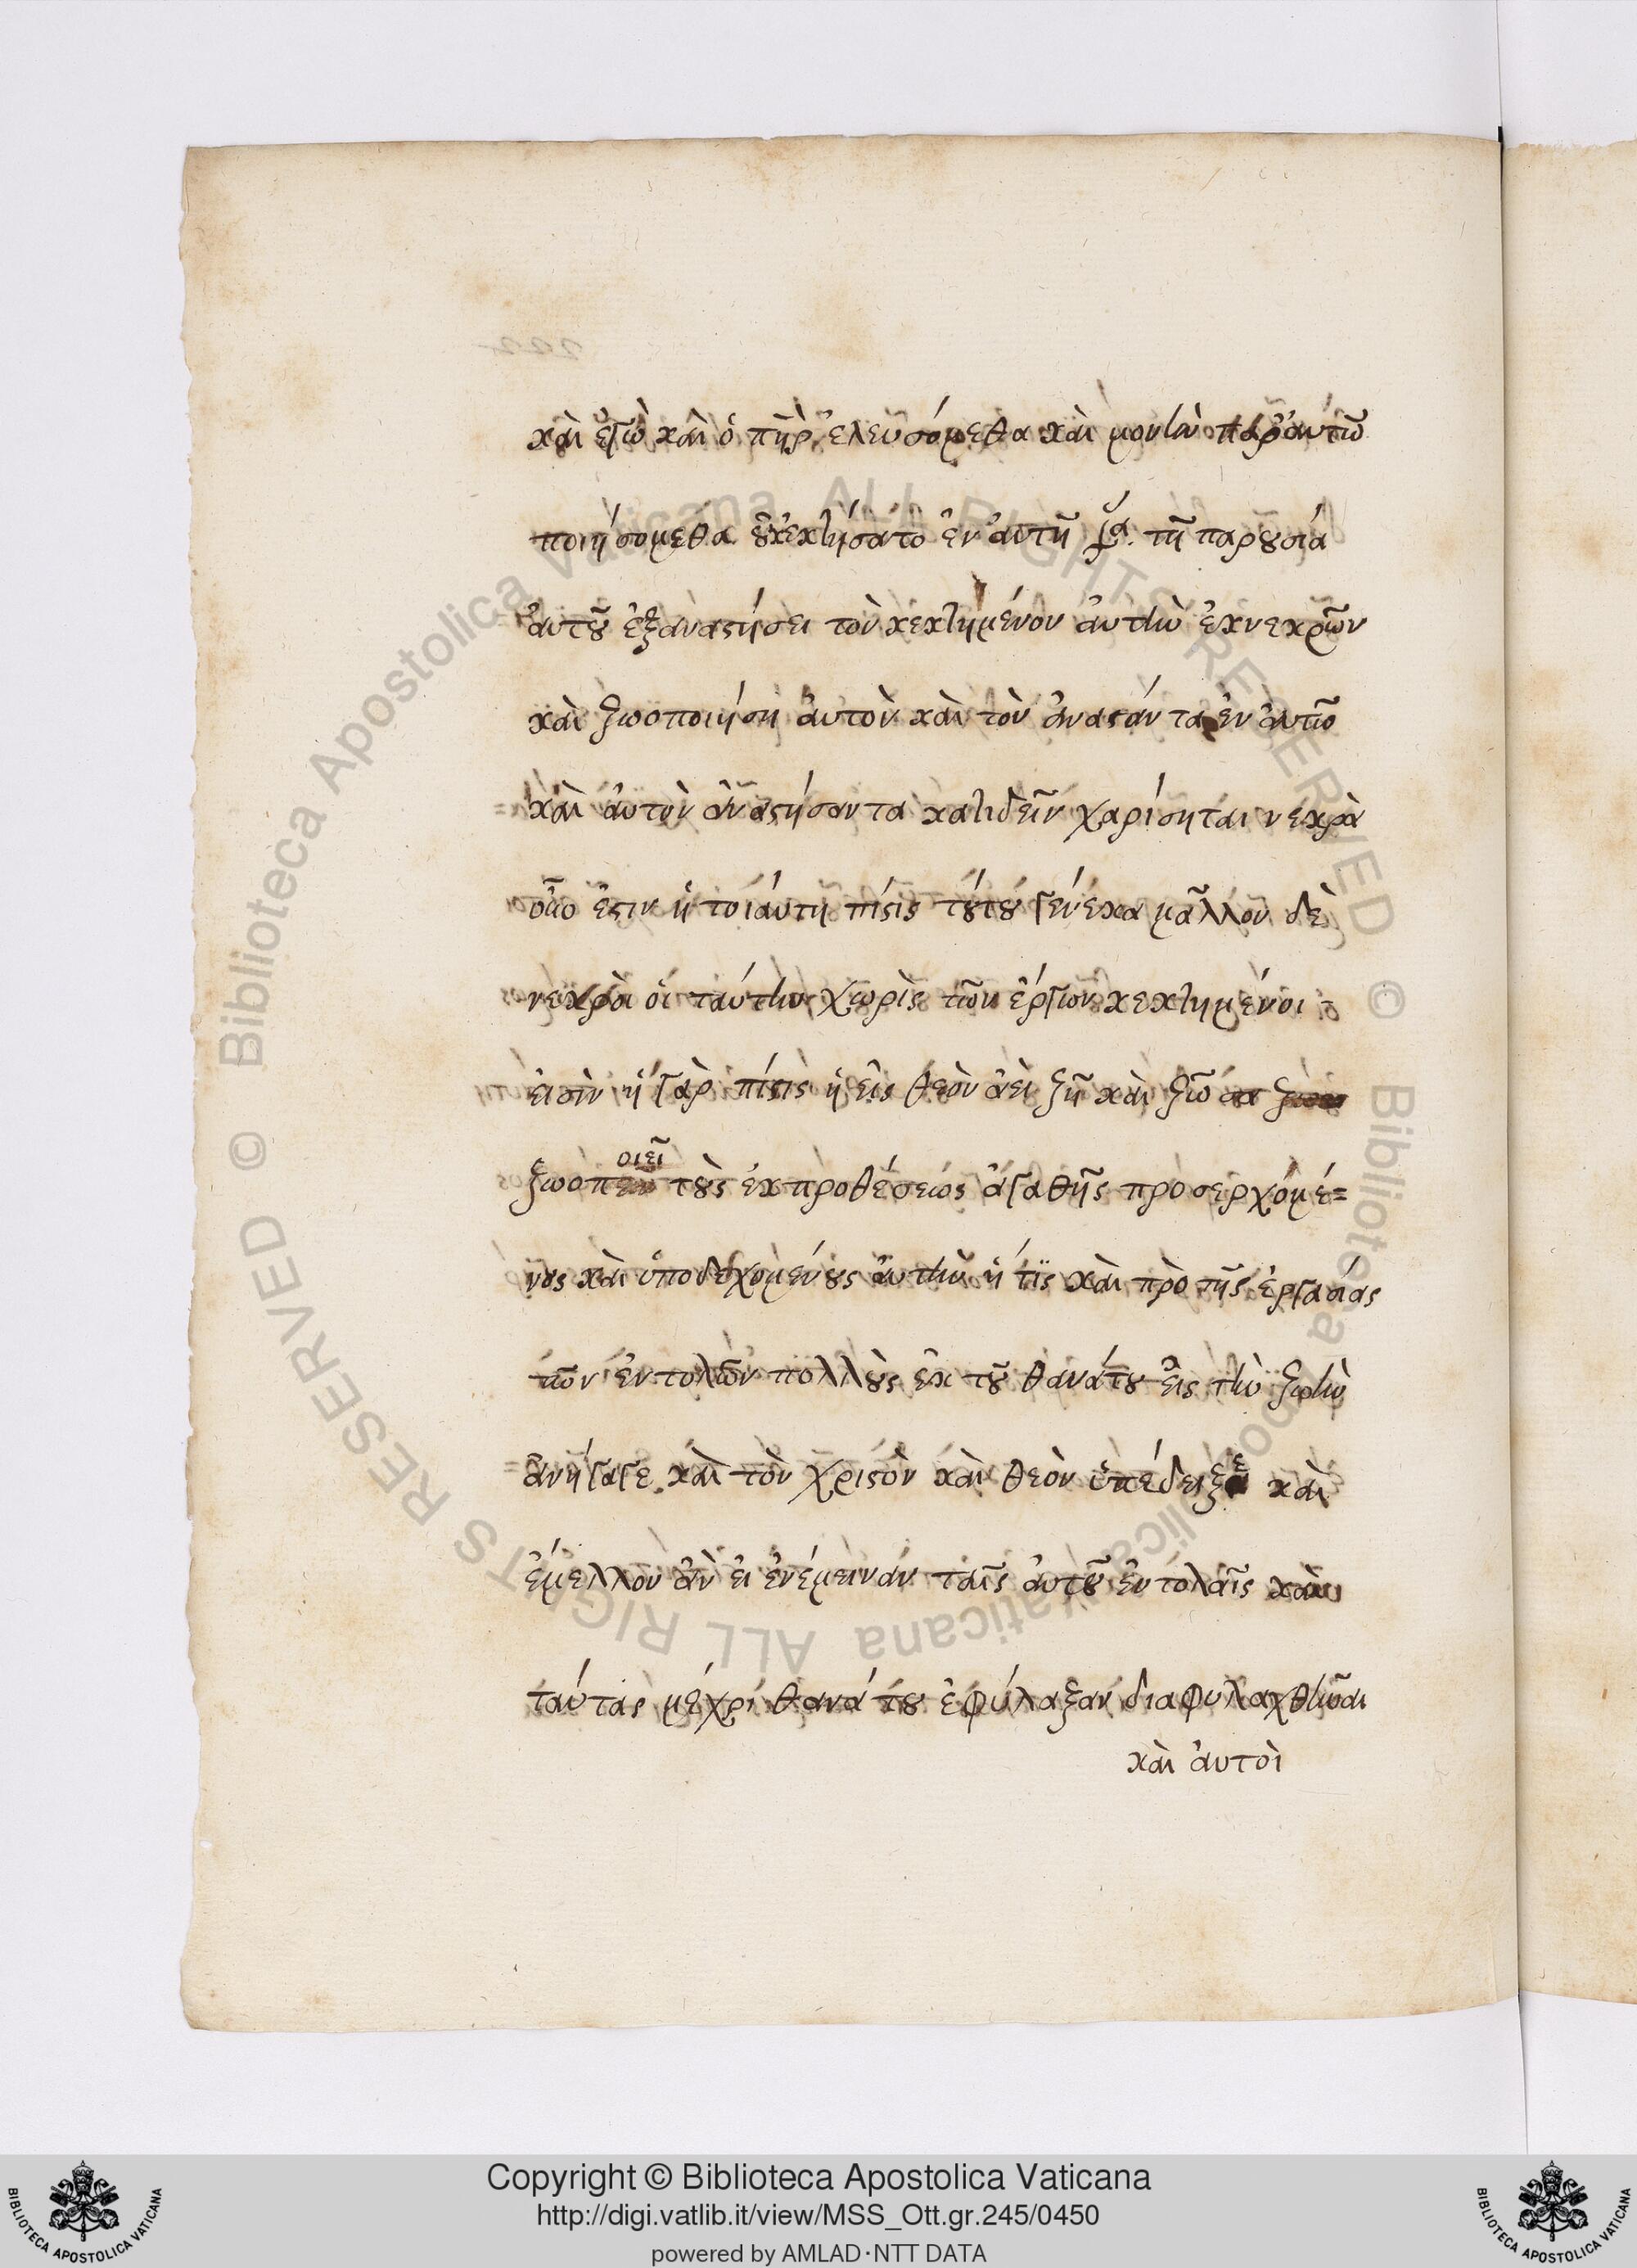 καὶ ἐγὼ καὶ ὁ πὴρ ἐλευσόμεθα καὶ μονὴν παρ' αὐτῶ
ποιήσομεθα οὐκ ἐκτήσατο ἐν αὐτῆ τῆ παρουσία
αὐτοῦ ἐξαναστήσει τὸν κεκτημένον αὐτὴν ἐκ νεκρῶν
καὶ ζωοποιήση αὐτὸν καὶ τὸν ἀναστάντα ἐν αὐτῶ
καὶ αὐτὸν ἀναστήσαντα κατιδεῖν χαρίσηται νεκρὰ
ἐστιν ἡ τοιαύτη πίστις τούτου γ' ἕνεκα μᾶλλον δὲ
νεκροὶ οἱ ταύτην χωρὶς τῶν ἔργων κεκτημένοι
εἰσὶν ἡ γὰρ πίστις ἡ εἰς θεὸν ἀεὶ ζῆ καὶ ζῶσα
ζωοποιεῖ τοὺς ἐκ προθέσεως ἀγαθῆς προσερχομέ=
νους καὶ ὑποδεχομένους αὐτὴν ἥ τις καὶ πρὸ τῆς ἐργασίας
τῶν ἐντολῶν πολλοὺς ἐκ τοῦ θανάτου εἰς τὴν ζωὴν
ἀνήγαγε καὶ τὸν χριστὸν καὶ θεὸν ὑπέδειξε καὶ
ἔμελλον ἂν εἰ ἐνέμειναν ταῖς αὐτοῦ ἐντολαῖς καὶ
ταύτας μέχρι θανάτου ἐφύλαξαν διαφυλαχθῆναι
καὶ αὐτοὶ
Copyright © Biblioteca Apostolica Vaticana
http://digi.vatlib.it/view/MSS_Ott.gr.245/0450
powered by AMLAD·NTT DATA
BIBLIOTECA APOSTOLICA VATICANA
BIBLIOTECA APOSTOLICA VATICANA
© Biblioteca Apostolica Vaticana ALL RIGHTS RESERVED © Biblioteca Apostolica Vaticana ALL RIGHTS RESERVED